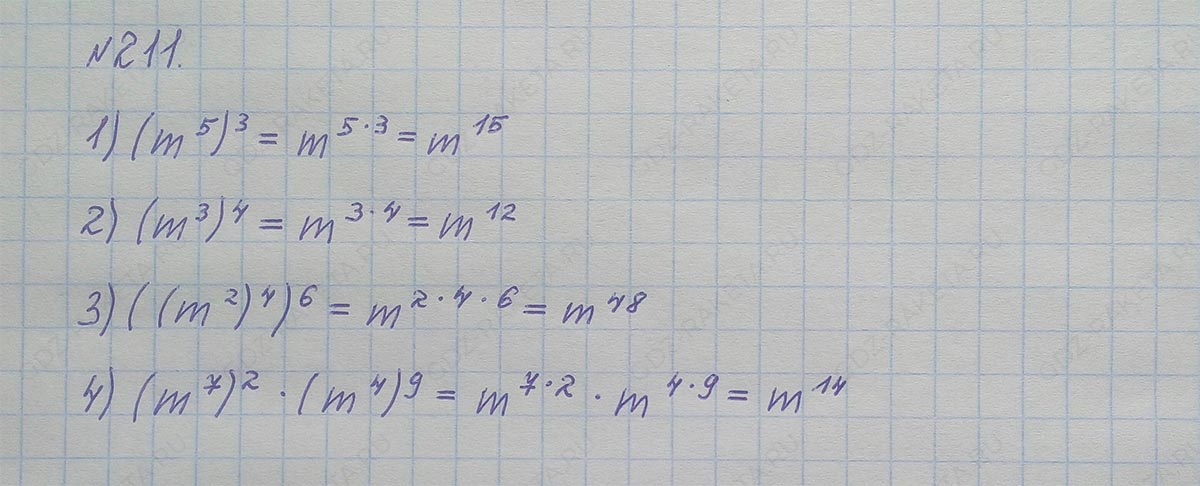 №211.
1) (m⁵)³ = m⁵·³ = m¹⁵
2) (m³)⁴ = m³·⁴ = m¹²
3) ((m²)⁴)⁶ = m²·⁴·⁶ = m⁴⁸
4) (m⁷)² · (m⁴)⁹ = m⁷·² · m⁴·⁹ = m¹⁴